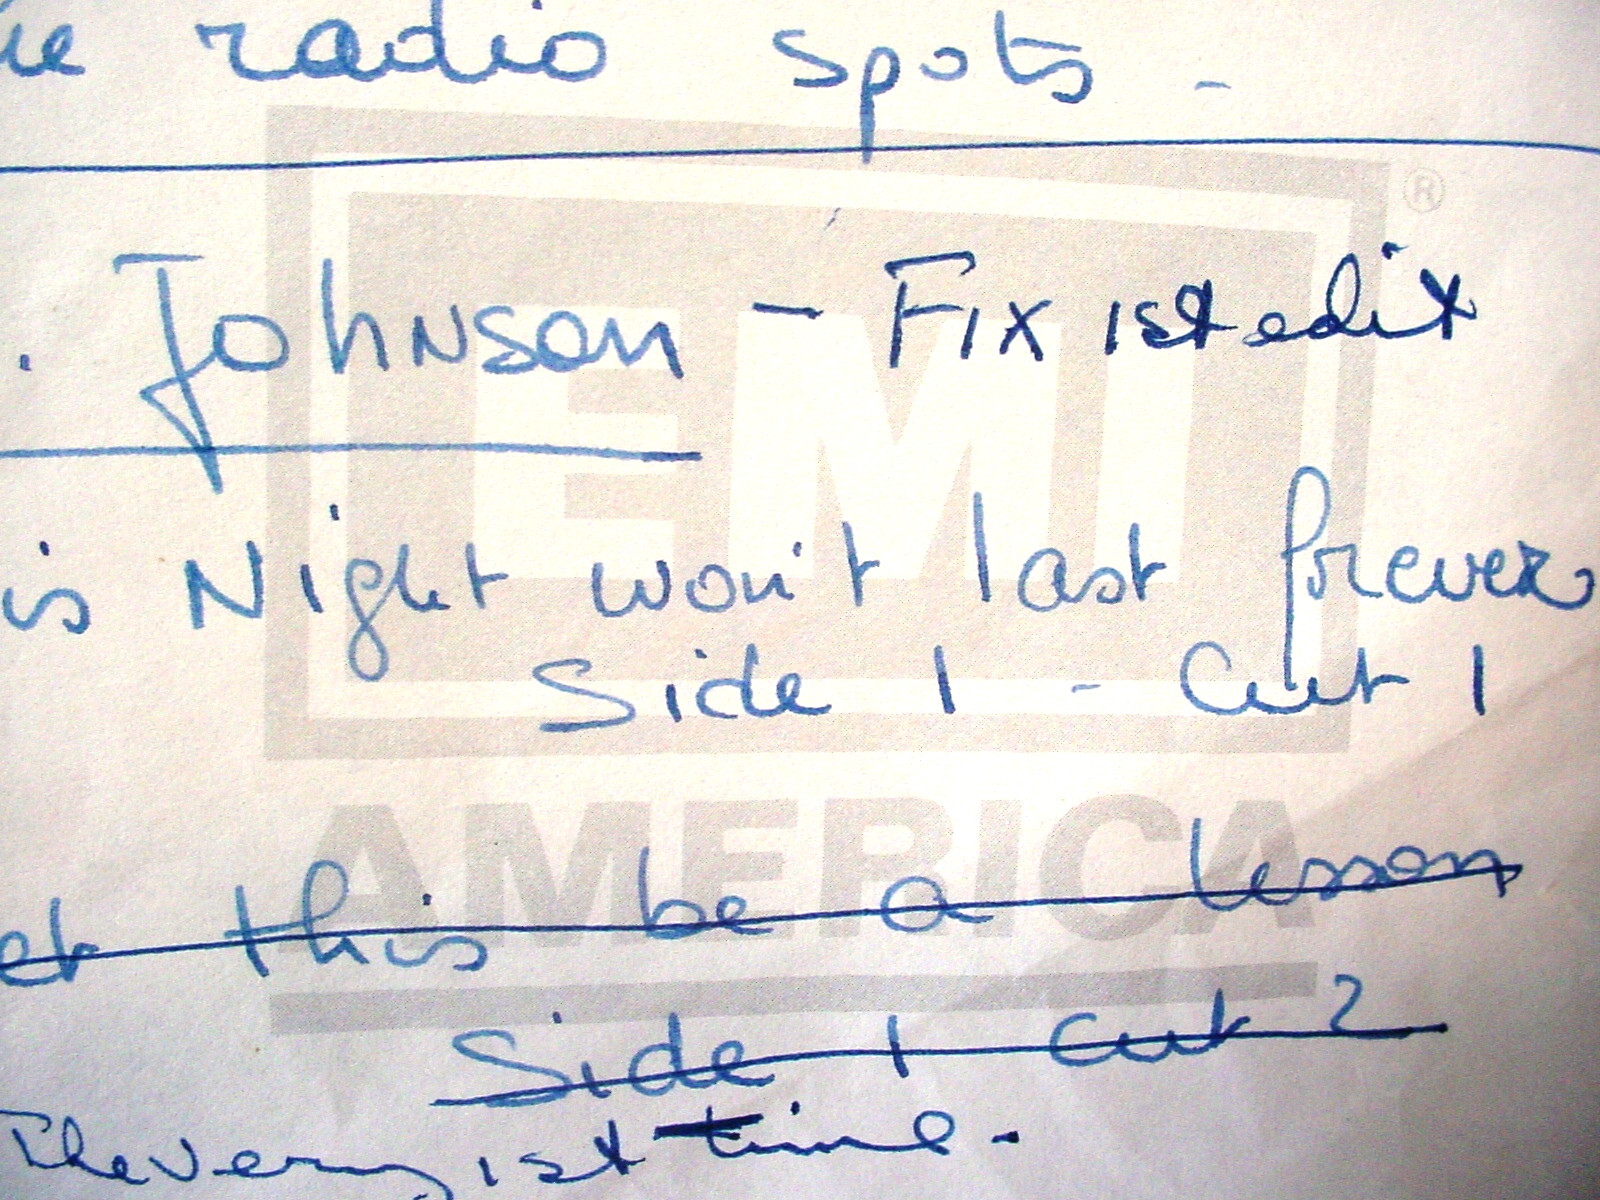 radio spots -
. Johnson - Fix 1st edit
is Night won't last forever
Side 1 - Cut 1
et this be a lesson
Side 1 cut 2
The very 1st time.
EMI
AMERICA
®